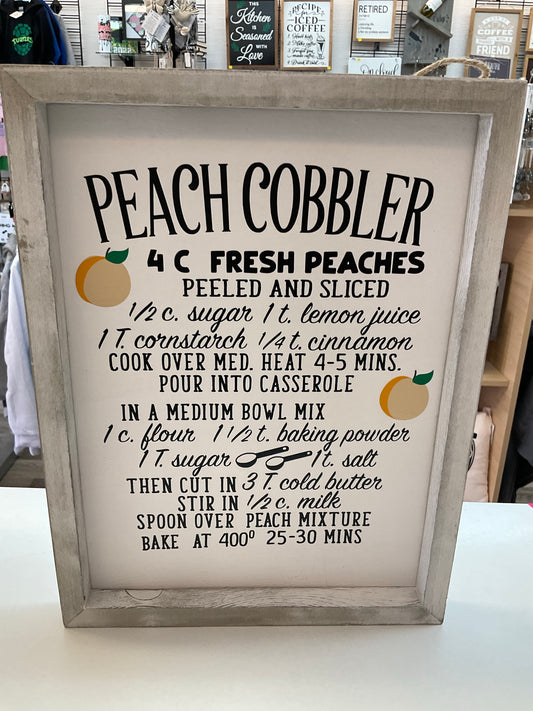 TURTLES
THIS
Kitchen
IS
Seasoned
WITH
Love
RECIPE
ICED
COFFEE
RETIRED
COFFEE
FRIEND
PEACH COBBLER
4 C FRESH PEACHES
PEELED AND SLICED
1/2 c. sugar 1 t. lemon juice
1 T. cornstarch 1/4 t. cinnamon
COOK OVER MED. HEAT 4-5 MINS.
POUR INTO CASSEROLE
IN A MEDIUM BOWL MIX
1 c. flour 1 1/2 t. baking powder
1 T. sugar 1 t. salt
THEN CUT IN 3 T. cold butter
STIR IN 1/2 c. milk
SPOON OVER PEACH MIXTURE
BAKE AT 400° 25-30 MINS